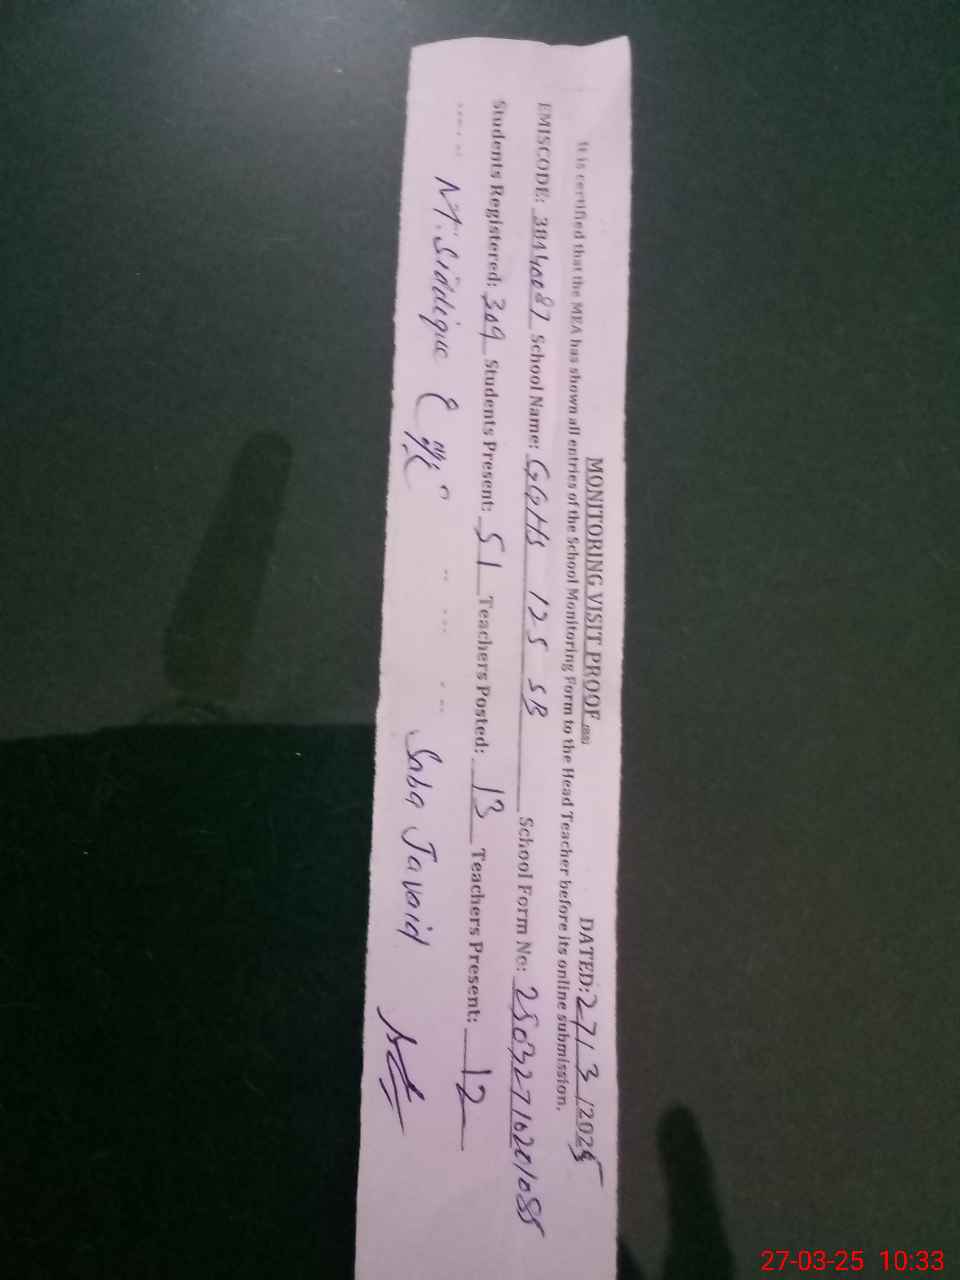 MONITORING VISIT PROOF DATED: 27/3/2025
It is certified that the MEA has shown all entries of the School Monitoring Form to the Head Teacher before its online submission.
EMISCODE: 38440087 School Name: GGHS 125 SB School Form No:
Students Registered: 309 Students Present: 51 Teachers Posted: 13 Teachers Present: 12
M. Siddique Saba Javaid
27-03-25 10:33